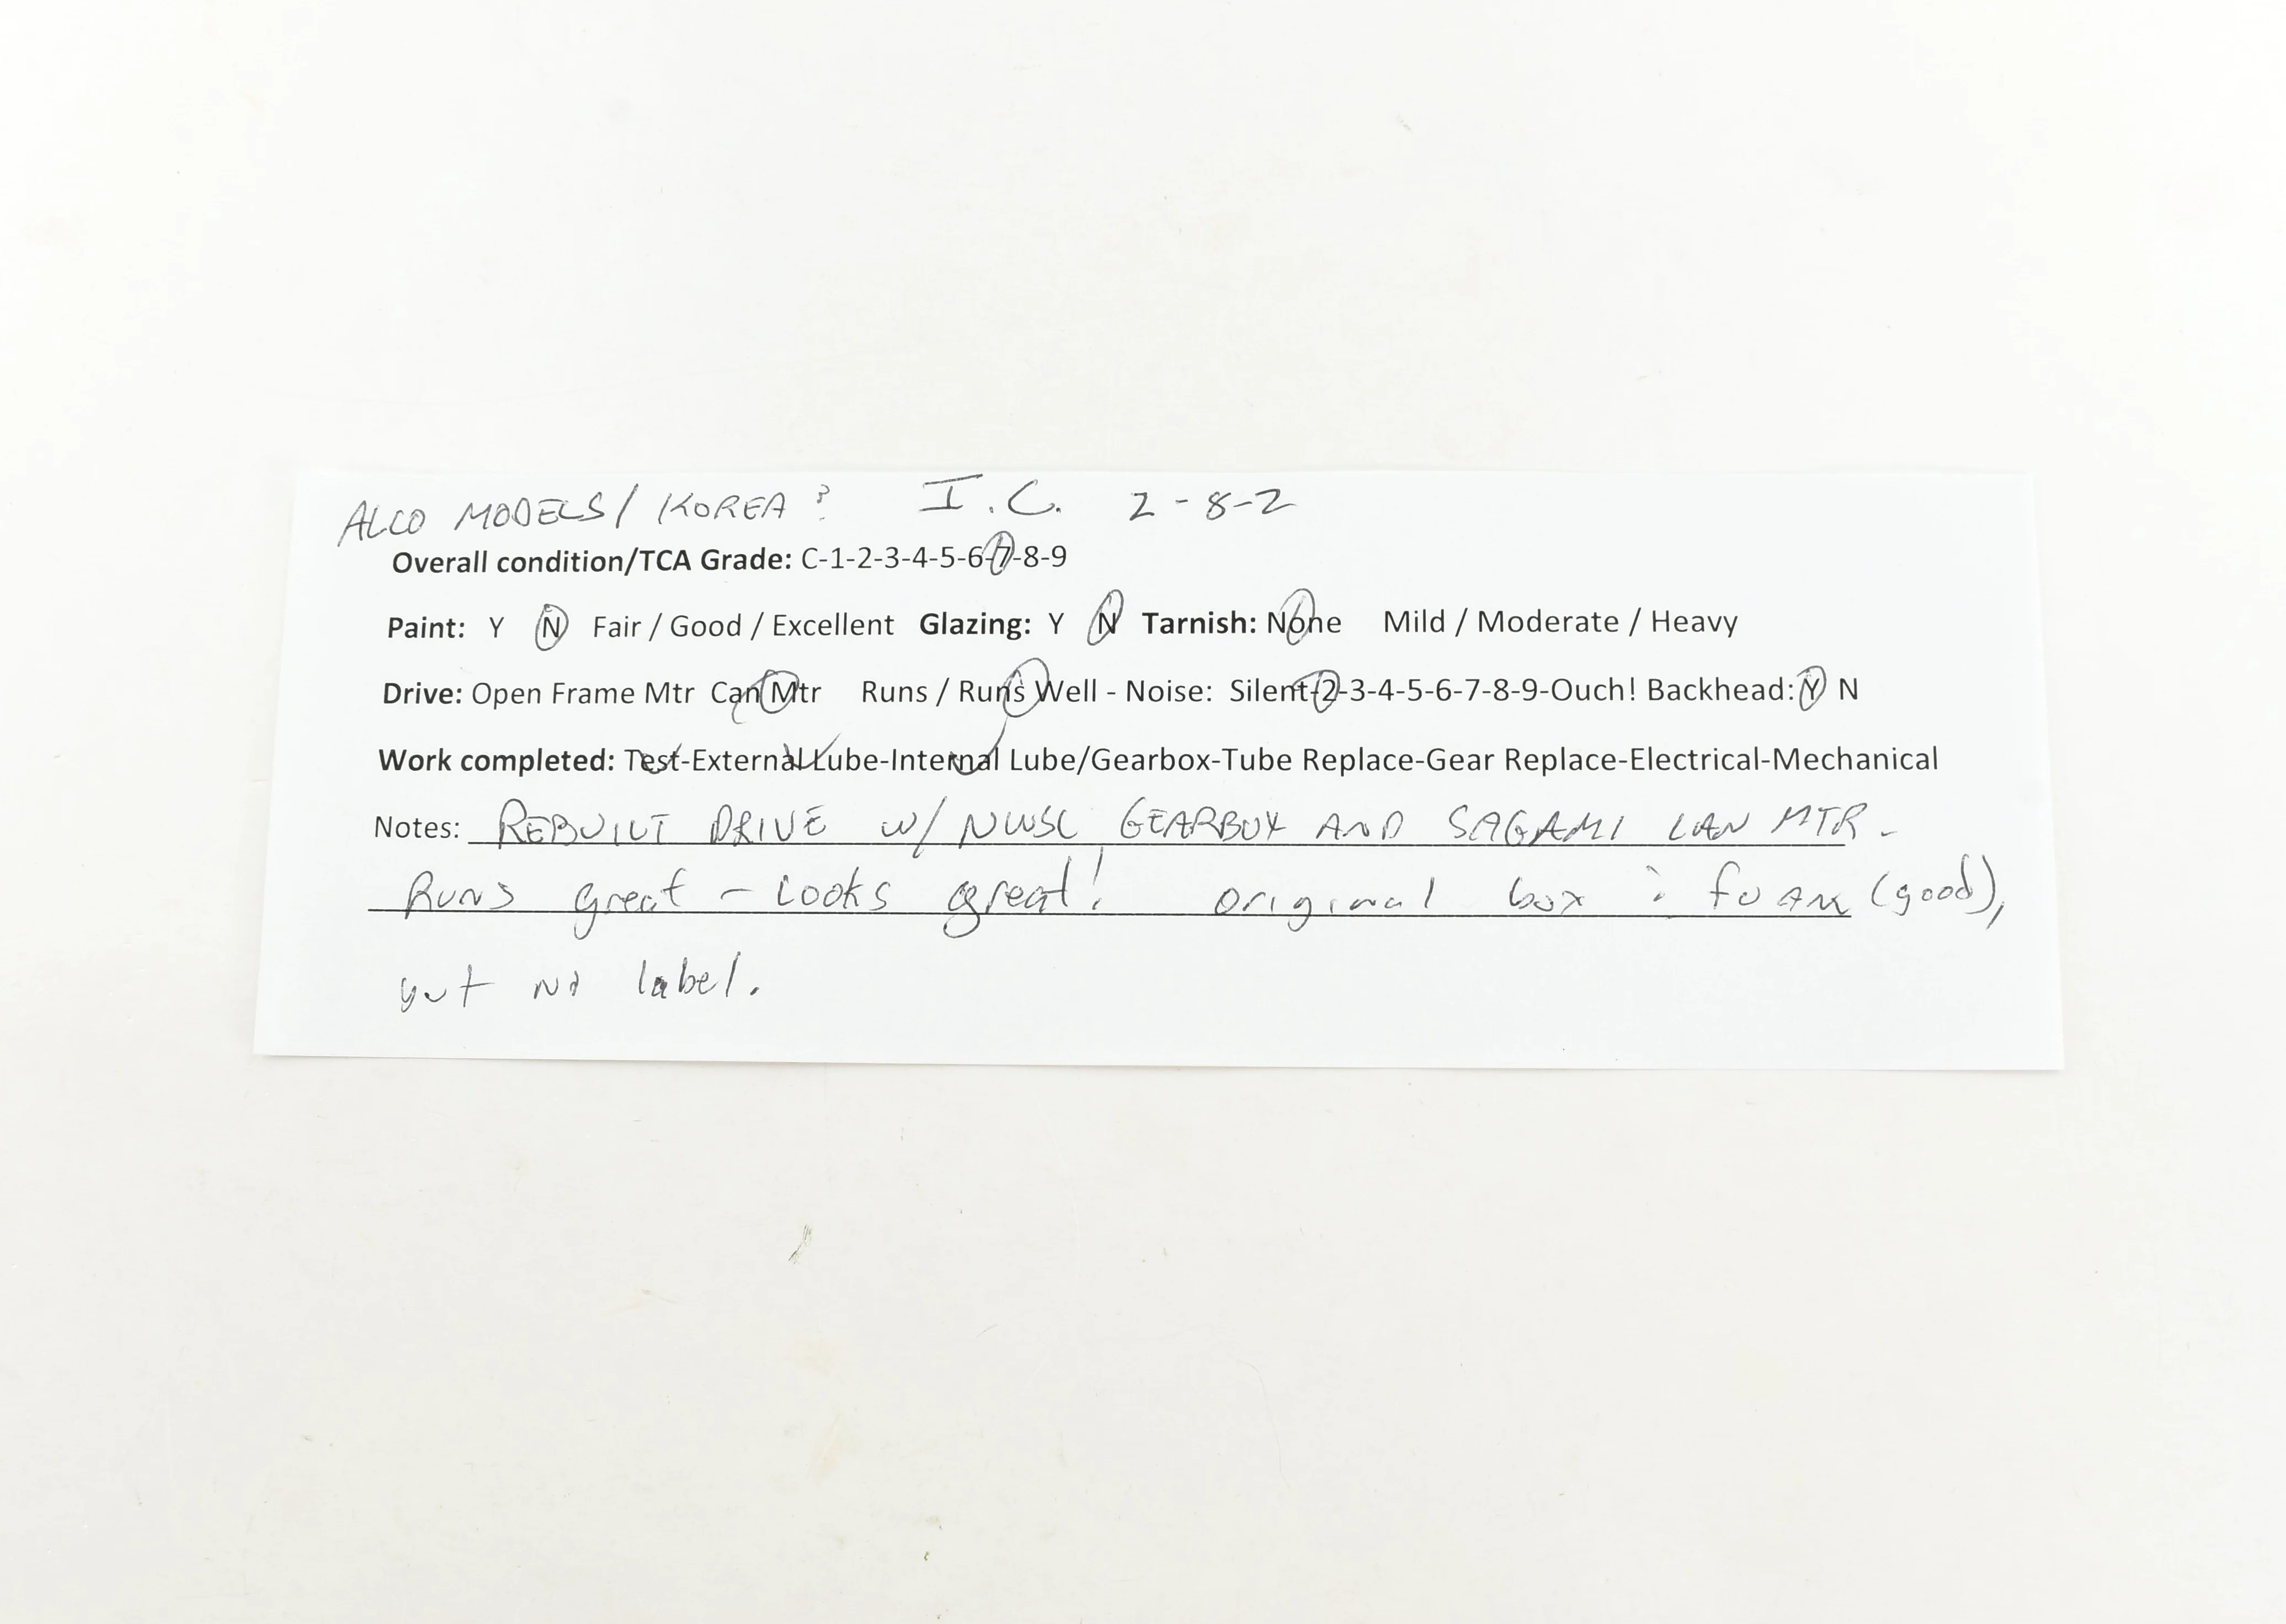 ALCO MODELS / KOREA? I.C. 2-8-2
Overall condition/TCA Grade: C-1-2-3-4-5-6-7-8-9
Paint: Y N Fair / Good / Excellent Glazing: Y N Tarnish: None Mild / Moderate / Heavy
Drive: Open Frame Mtr Can Mtr Runs / Runs Well - Noise: Silent-2-3-4-5-6-7-8-9-Ouch! Backhead: Y N
Work completed: Test-External Lube-Internal Lube/Gearbox-Tube Replace-Gear Replace-Electrical-Mechanical
Notes: REBUILT DRIVE w/ NWSL GEARBOX AND SAGAMI CAN MTR -
Runs great - Looks great! original box : foam (good),
but no label.